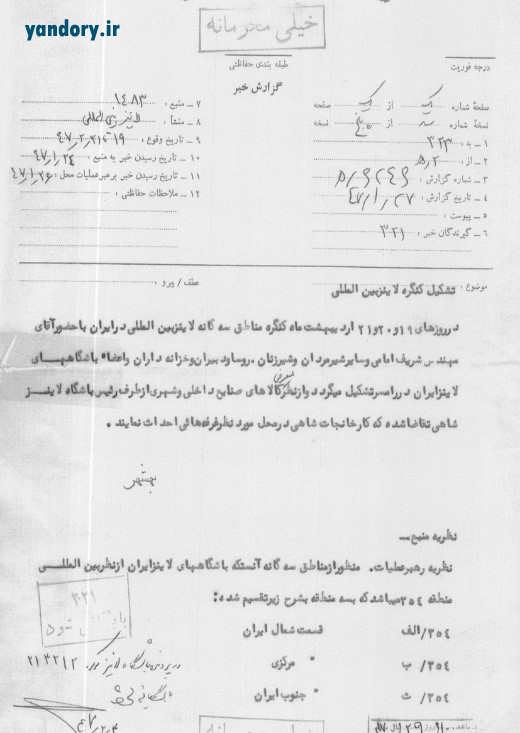 yandory.ir
خیلی محرمانه
طبقه بندی حفاظتی
درجه فوریت
گزارش خبر
صفحهٔ شماره یک از یک صفحه
نسخهٔ شماره سه از پنج نسخه
۱ ـ به : ۳۲۳
۲ ـ از : ۲ ه
۳ ـ شماره گزارش :
۴ ـ تاریخ گزارش : ۴۷/۱/۲۷
۵ ـ پیوست :
۶ ـ گیرندگان خبر : ۳۲۱
۷ ـ منبع : ۱۴۸۳
۸ ـ منشأ : لاینز بین المللی
۹ ـ تاریخ وقوع : ۱۹-۲۱/۲/۴۷
۱۰ ـ تاریخ رسیدن خبر به منبع : ۴۷/۱/۲۴
۱۱ ـ تاریخ رسیدن خبر برهبر عملیات محل : ۴۷/۱/۲۶
۱۲ ـ ملاحظات حفاظتی :
موضوع : تشکیل کنگره لاینزبین المللی
عطف / پیرو :
در روزهای ۱۹ و ۲۰ و ۲۱ اردیبهشت ماه کنگره مناطق سه گانه لاینزبین المللی در ایران با حضور آقای
مهندس شریف امامی وسایر شیرمردان وشیرزنان . روسا و دبیران وخزانه داران واعضاء باشگاههای
لاینزایران در رامسر تشکیل میگردد و ازنظر معرفی کالاهای صنایع داخلی وشهری ازطرف رئیس باشگاه لاینز
شاهی تقاضا شده که کارخانجات شاهی در محل مورد نظر غرفه هائی احداث نمایند .
بهشهر
نظریه منبع ـ
نظریه رهبر عملیات . منظور از مناطق سه گانه آنستکه باشگاههای لاینزایران ازنظر بین المللی
منطقه ۳۵۴ میباشد که بسه منطقه بشرح زیر تقسیم شده :
۳۵۴/ الف قسمت شمال ایران
۳۵۴/ ب " مرکزی
۳۵۴/ ث " جنوب ایران
۳۰۲۱
شود
در پرونده باشگاه لاینز
۲۱۳۲۱۲
بایگانی شود